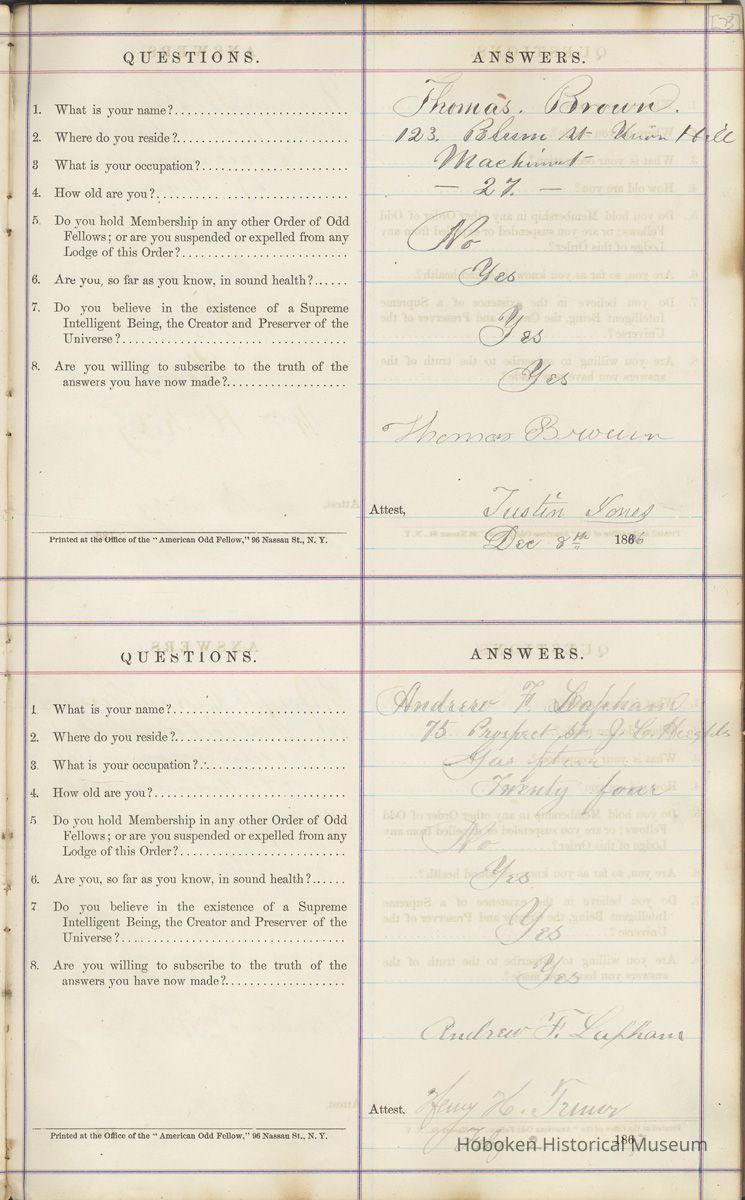 QUESTIONS. ANSWERS.
1. What is your name? Thomas. Brown.
2. Where do you reside? 123. Blum St Union Hill
3 What is your occupation? Machinist
4. How old are you? — 27. —
5. Do you hold Membership in any other Order of Odd
Fellows; or are you suspended or expelled from any
Lodge of this Order? No
6. Are you, so far as you know, in sound health? Yes
7. Do you believe in the existence of a Supreme
Intelligent Being, the Creator and Preserver of the
Universe? Yes
8. Are you willing to subscribe to the truth of the
answers you have now made? Yes
Thomas Brown
Attest, Justin Jones
Printed at the Office of the "American Odd Fellow," 96 Nassau St., N. Y. Dec 8th 1866
QUESTIONS. ANSWERS.
1 What is your name? Andrew F. Lapham
2. Where do you reside? 75 Prospect St J. C. Heights
3. What is your occupation? Gas
4. How old are you? Twenty four
5 Do you hold Membership in any other Order of Odd
Fellows; or are you suspended or expelled from any
Lodge of this Order? No
6. Are you, so far as you know, in sound health? Yes
7 Do you believe in the existence of a Supreme
Intelligent Being, the Creator and Preserver of the
Universe? Yes
8. Are you willing to subscribe to the truth of the
answers you have now made? Yes
Andrew F. Lapham
Attest, Henry H.
Printed at the Office of the "American Odd Fellow," 96 Nassau St., N. Y. 186
Hoboken Historical Museum